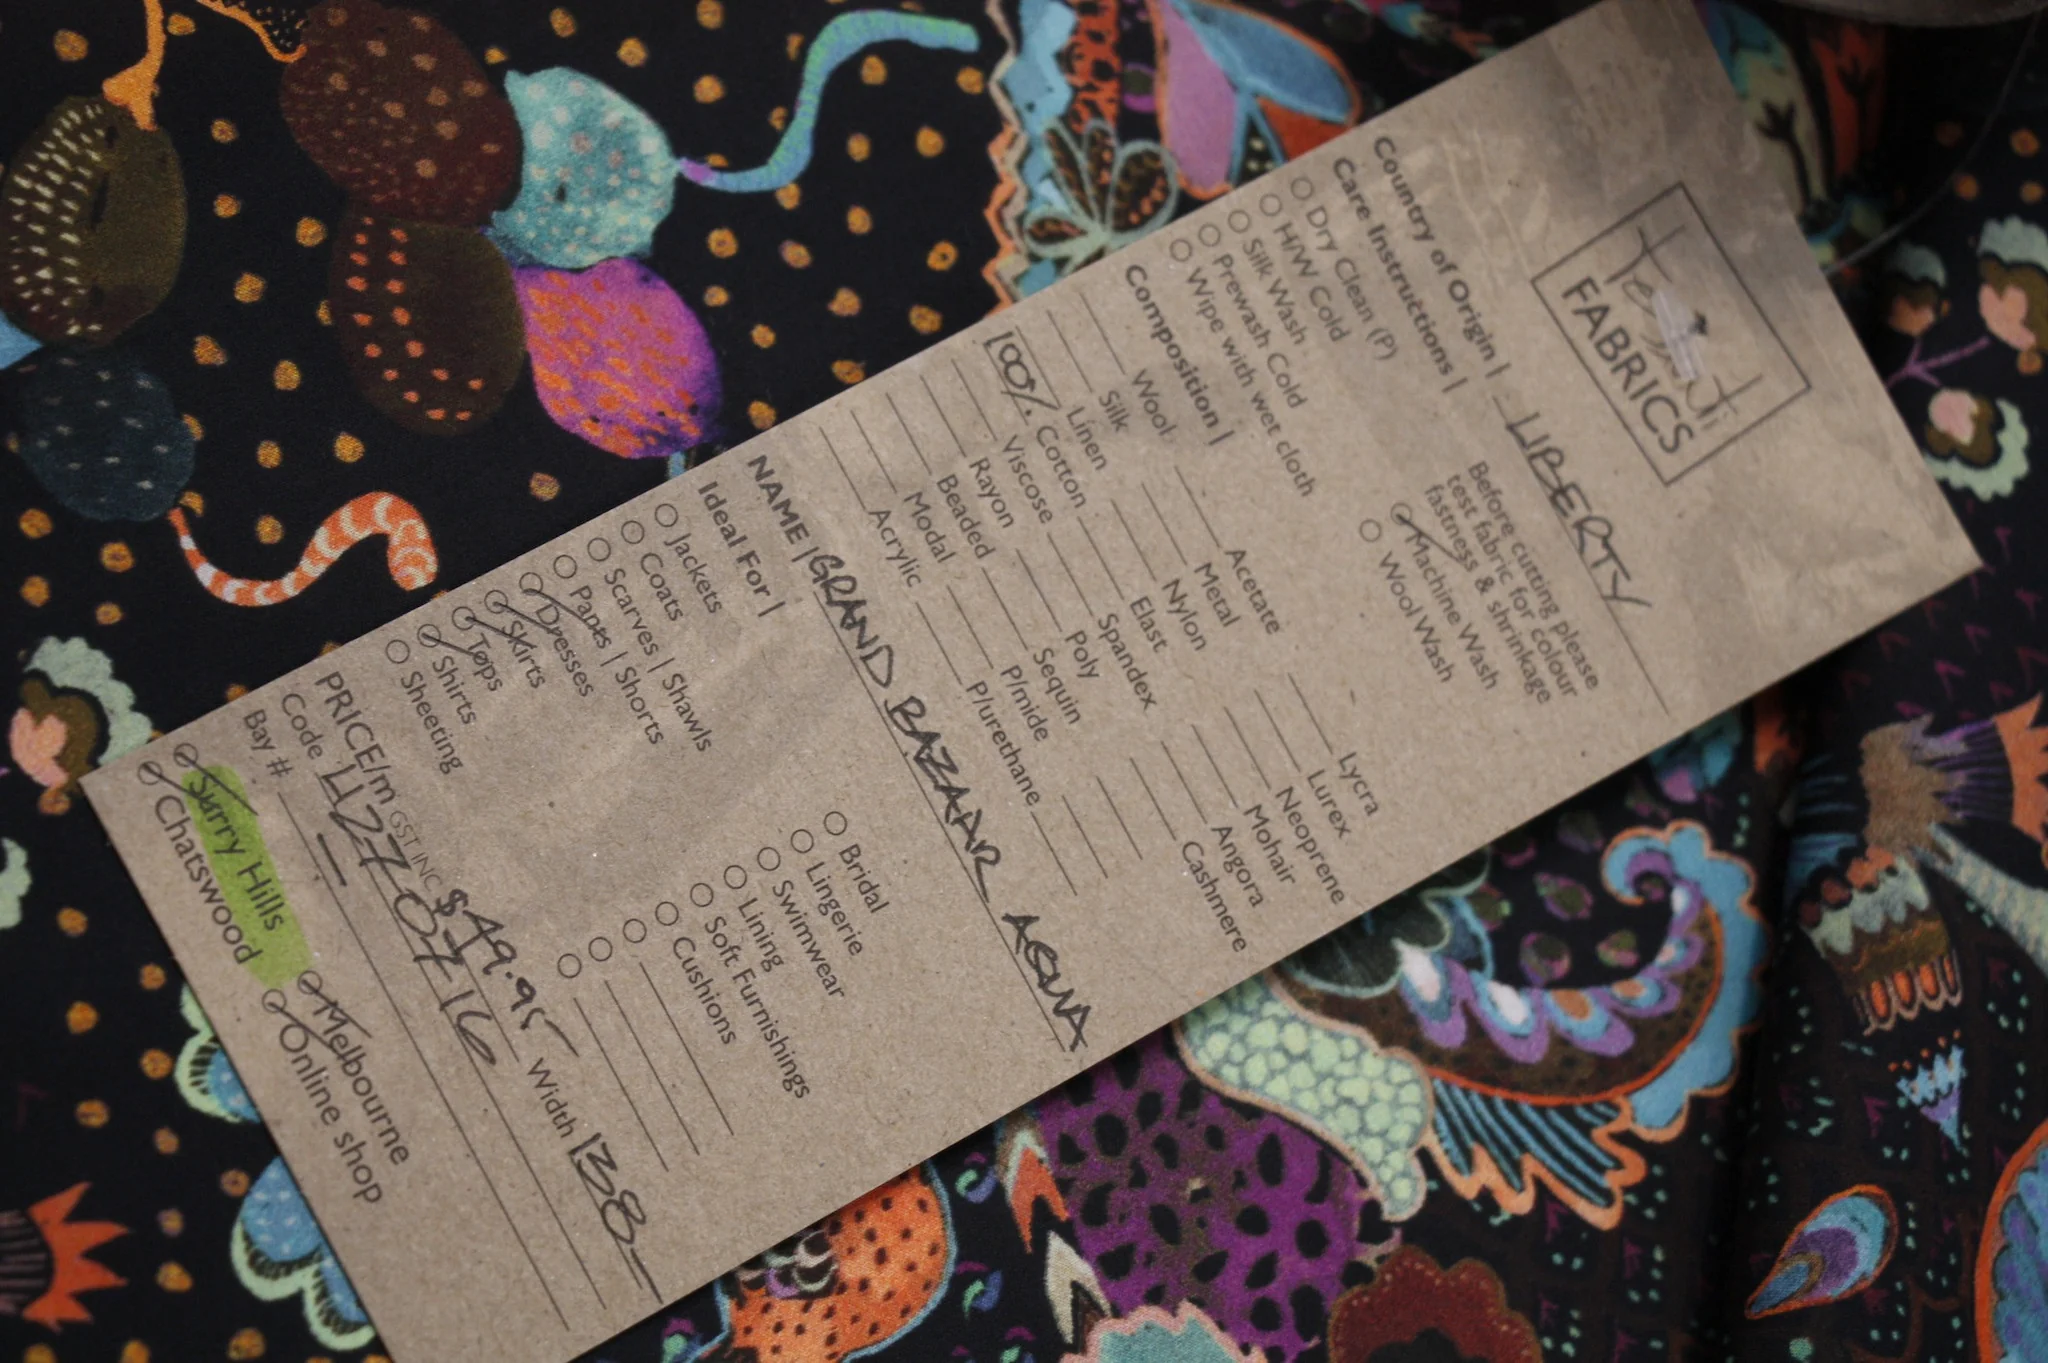 Tessuti
FABRICS
Country of Origin | LIBERTY
Care Instructions |
Dry Clean (P)
H/W Cold
Silk Wash
Prewash Cold
Wipe with wet cloth
Before cutting please
test fabric for colour
fastness & shrinkage
Machine Wash
Wool Wash
Composition |
Wool
Silk
Linen
100% Cotton
Viscose
Rayon
Beaded
Modal
Acrylic
Acetate
Metal
Nylon
Elast
Spandex
Poly
Sequin
P/mide
P/urethane
Lycra
Lurex
Neoprene
Mohair
Angora
Cashmere
NAME | GRAND BAZAAR
Ideal For |
Jackets
Coats
Scarves | Shawls
Pants | Shorts
Dresses
Skirts
Tops
Shirts
Sheeting
Bridal
Lingerie
Swimwear
Lining
Soft Furnishings
Cushions
PRICE/m GST INC $49.95 Width 138
Code
Bay #
Surry Hills
Chatswood
Melbourne
Online shop